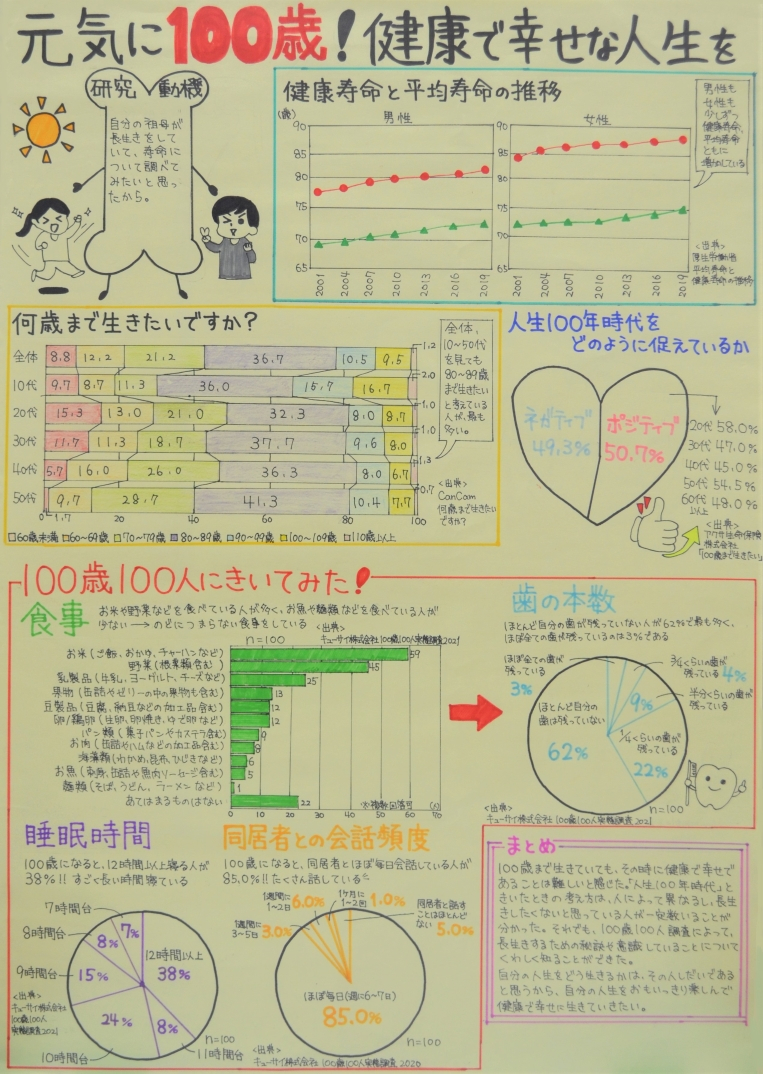 元気に100歳!健康で幸せな人生を
研究動機
自分の祖母が
長生きをして
いて、寿命に
ついて調べて
みたいと思っ
たから。
健康寿命と平均寿命の推移
(歳)
男性
女性
90
85
80
75
70
65
90
85
80
75
70
65
2001 2004 2007 2010 2013 2016 2019
2001 2004 2007 2010 2013 2016 2019
男性も
女性も
少しずつ
健康寿命、
平均寿命
ともに
増加している
<出典>
厚生労働省
平均寿命と
健康寿命の推移
何歳まで生きたいですか?
全体 8.8 12.2 21.2 36.7 10.5 9.5 1.2
10代 9.7 8.7 11.3 36.0 15.7 16.7 2.0
20代 15.3 13.0 21.0 32.3 8.0 8.7 1.0
30代 11.7 11.3 18.7 37.7 9.6 8.0 1.0
40代 5.7 16.0 26.0 36.3 8.0 6.7 1.3
50代 9.7 28.7 41.3 10.4 7.7 0.7
0 1.7 20 40 60 80 100
60歳未満 60~69歳 70~79歳 80~89歳 90~99歳 100~109歳 110歳以上
全体、
10~50代
を見ても
80~89歳
まで生きたい
と考えている
人が、最も
多い。
<出典>
CanCam
何歳まで生きたい
ですか?
人生100年時代を
どのように捉えているか
ネガティブ
49.3%
ポジティブ
50.7%
20代 58.0%
30代 47.0%
40代 45.0%
50代 54.5%
60代 48.0%
以上
<出典>
アクサ生命保険
株式会社
「100歳まで生きたい」
100歳100人にきいてみた!
食事
お米や野菜などを食べている人が多く、お魚や麺類などを食べている人が
少ない→のどにつまらない食事をしている
<出典>
キューサイ株式会社 100歳100人実態調査2021
n=100
お米(ご飯、おかゆ、チャーハンなど) 59
野菜(根菜類含む) 45
乳製品(牛乳、ヨーグルト、チーズなど) 25
果物(缶詰やゼリーの中の果物も含む) 13
豆製品(豆腐、納豆などの加工品含む) 12
卵/鶏卵(生卵、卵焼き、ゆで卵など) 12
パン類(菓子パンやカステラ含む) 9
お肉(缶詰やハムなどの加工品含む) 8
海藻類(わかめ、昆布、ひじきなど) 6
お魚(刺身、缶詰や魚肉ソーセージ含む) 5
麺類(そば、うどん、ラーメンなど) 1
あてはまるものはない 22
※複数回答可
(人)
歯の本数
ほとんど自分の歯が残っていない人が62%で最も多く、
ほぼ全ての歯が残っているのは3%である
ほぼ全ての歯が
残っている
3%
3/4くらいの歯が
残っている 4%
半分くらいの歯が
残っている
9%
1/4くらいの歯が
残っている
22%
ほとんど自分の
歯は残っていない
62%
n=100
<出典>
キューサイ株式会社 100歳100人実態調査2021
睡眠時間
100歳になると、12時間以上寝る人が
38%!!すごく長い時間寝ている
7時間台
7%
8時間台
8%
9時間台
15%
10時間台
24%
11時間台
8%
12時間以上
38%
n=100
<出典>
キューサイ株式会社
100歳100人
実態調査2021
同居者との会話頻度
100歳になると、同居者とほぼ毎日会話している人が
85.0%!!たくさん話している
1週間に
3~5日 3.0%
1週間に
1~2日 6.0%
1ヶ月に
1~2回 1.0%
同居者と話す
ことはほとんど
ない 5.0%
ほぼ毎日(週に6~7日)
85.0%
n=100
<出典>
キューサイ株式会社 100歳100人実態調査2020
まとめ
100歳まで生きていても、その時に健康で幸せで
あることは難しいと感じた。「人生100年時代」と
きいたときの考え方は、人によって異なるし、長生
きしたくないと思っている人が一定数いることが
分かった。それでも、100歳100人調査によって、
長生きするための秘訣や意識していることについて
くわしく知ることができた。
自分の人生をどう生きるかは、その人しだいである
と思うから、自分の人生をおもいっきり楽しんで
健康で幸せに生きていきたい。